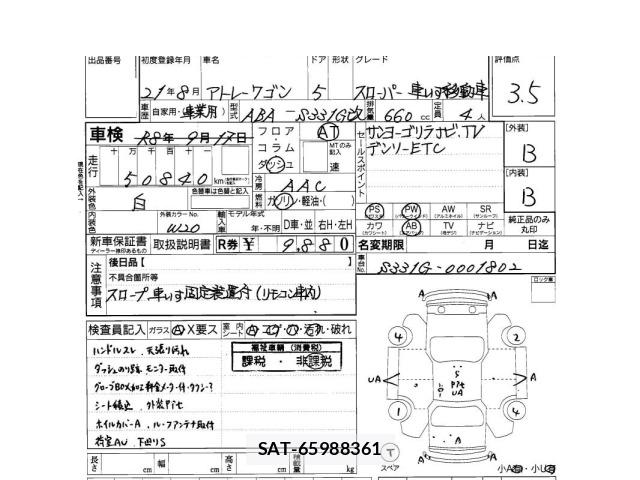 出品番号 初度登録年月 車名 ドア 形状 グレード 評価点
21年8月 アトレーワゴン 5 スローパー 車いす移動車 3.5
車歴 自家用・事業用 型式 ABA-S331G改 排気量 660 cc 定員 4人
車検 R8年9月17日 フロア AT サンヨーゴリラナビ、TV [外装]
コラム MTのみ記入 デンソーETC B
走行 十万千百十一 ダッシュ 速 セールスポイント
50840 km 冷房 AAC [内装]
外装色 白 色替車は色替と記入 燃料 ガソリン・軽油・( ) B
PS PW AW SR
内装色 外装カラーNo. W20 輸入車 モデル年式 年・不明 D車・並 右H・左H カワ AB TV ナビ 純正品のみ丸印
新車保証書 取扱説明書 R券 ¥ 9,880 名変期限 月 日迄
注意事項 後日品 [ 車台No. S331G-0001802
不具合箇所等 ロック車
スロープ 車いす固定装置付(リモコン車内)
検査員記入 ガラス A X要ス 室内シート A コゲ・穴・汚れ・破れ
ハンドルスレ、天張り汚れ 福祉車輌(消費税)
課税・非課税
シート
ホイルカバーA、ルーフアンテナ取付
荷室AU、下廻りS
長さ cm 幅 cm 高さ cm 積載量 kg
SAT-65988361
4 2 A
UA S Pit UA A
1 4
A
A A
T スペア 小A 小U